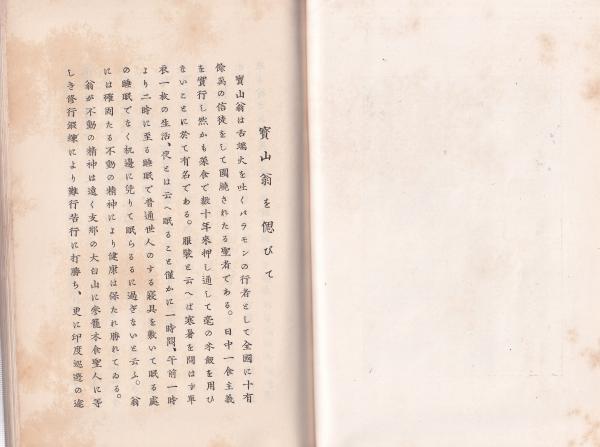 寳山翁を偲びて
寳山翁は舌端火を吐くバラモンの行者として全國に十有
餘萬の信徒をして圍繞されたる聖者である。日中一食主義
を實行し然かも菜食で數十年來押し通して毫の米飯を用ひ
ないことに於て有名である。服裝と云へば寒暑を問はず單
衣一枚の生活、夜とは云へ眠ること僅かに一時間、午前一時
より二時に至る睡眠で普通世人のする寢具を敷いて眠る處
の睡眠でなく机邊に凭りて眠らるるに過ぎないと云ふ。翁
には確固たる不動の精神により健康は保たれ勝れてゐる。
翁が不動の精神は遠く支那の大白山に參籠木食聖人に等
しき修行鍛練により難行苦行に打勝ち、更に印度巡遊の途